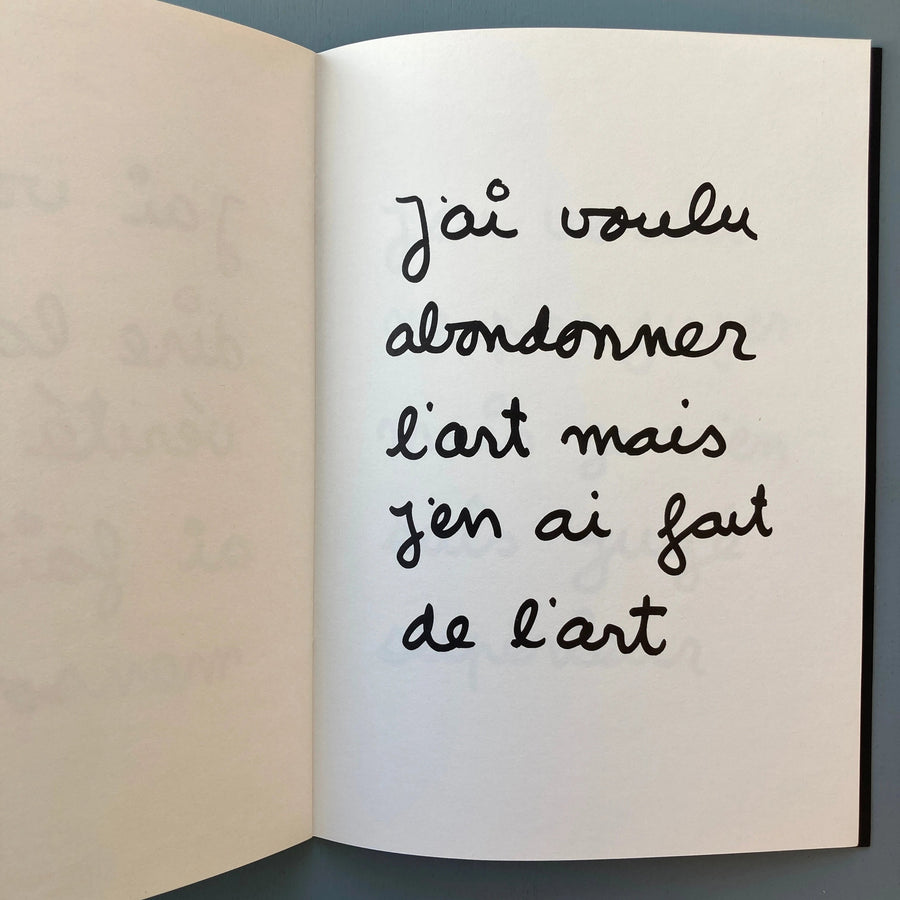 j'ai voulu
abandonner
l'art mais
j'en ai fait
de l'art